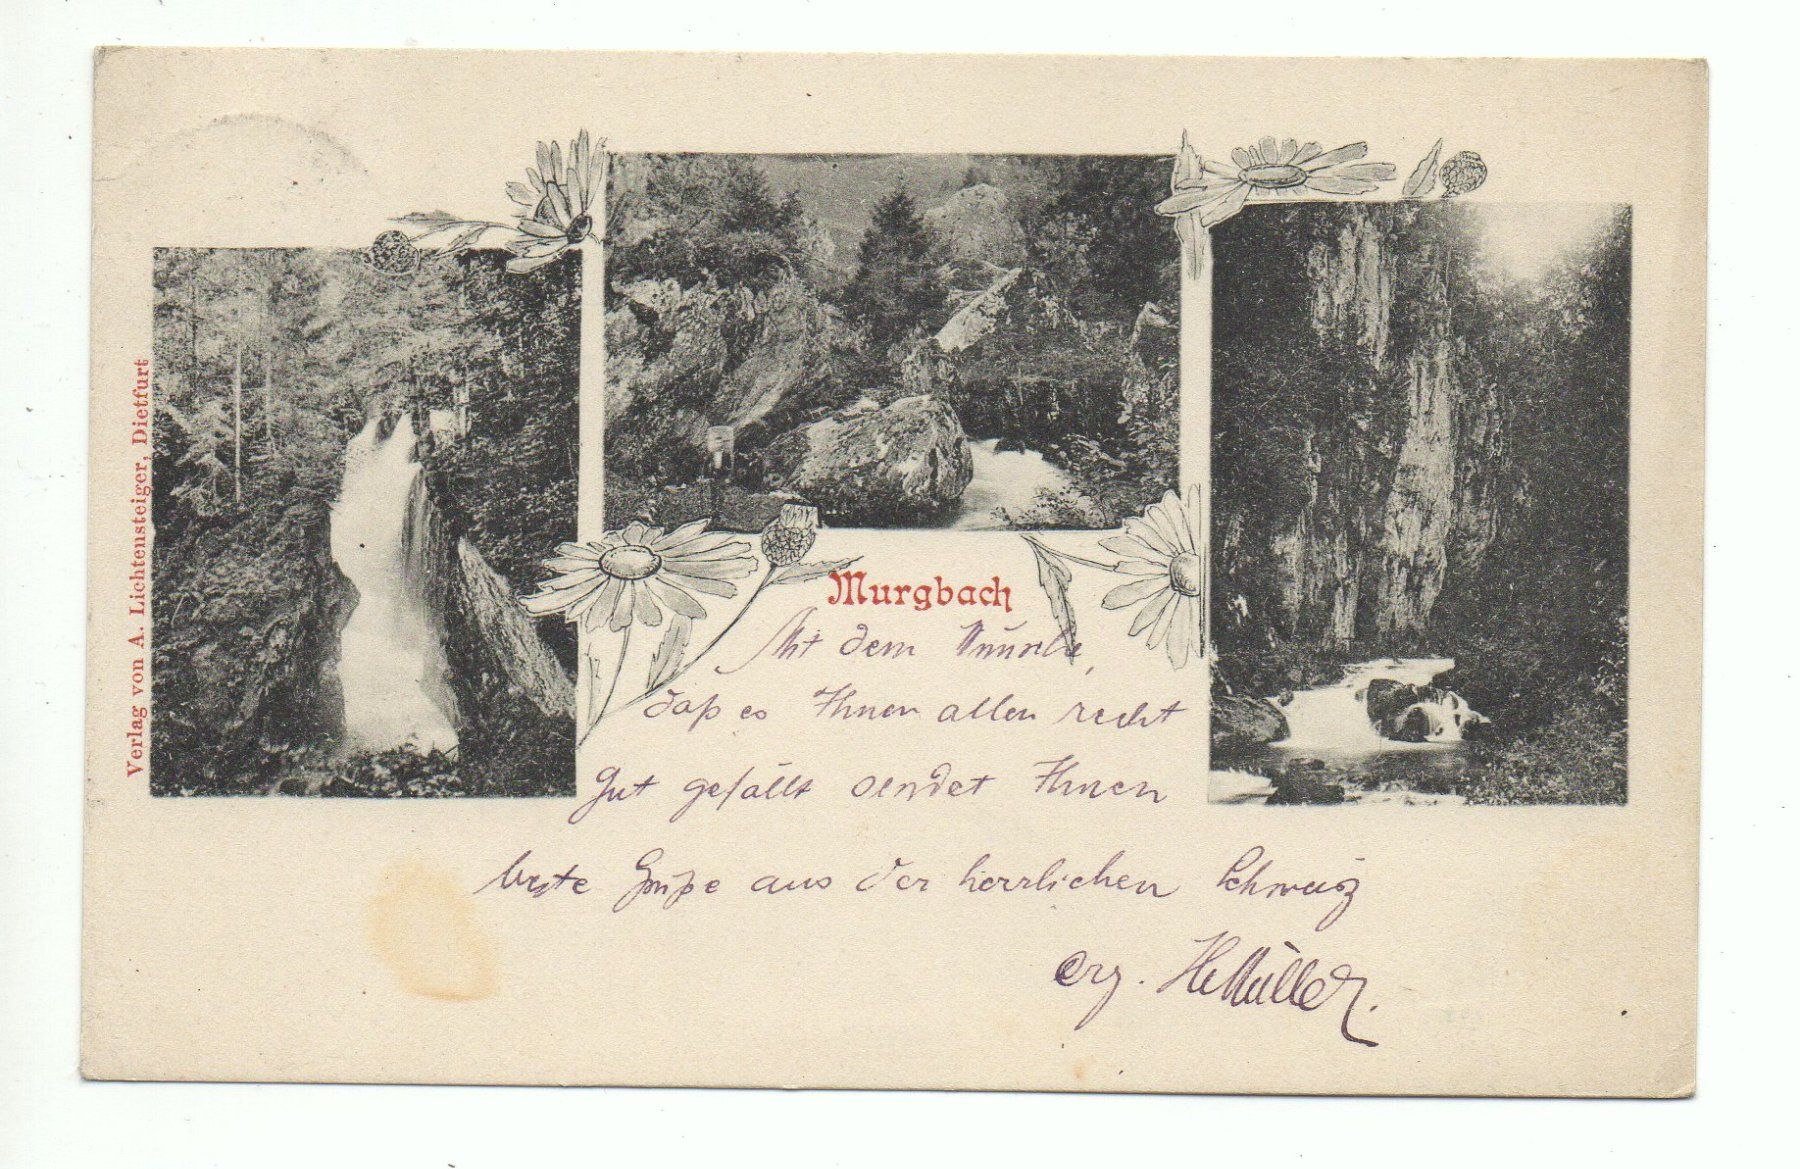 Verlag von A. Lichtensteiger, Dietfurt
Murgbach
Mit dem Wunsche,
daß es Ihnen allen recht
gut gefällt sendet Ihnen
beste Grüße aus der herrlichen Schweiz
erg. H. Müller.